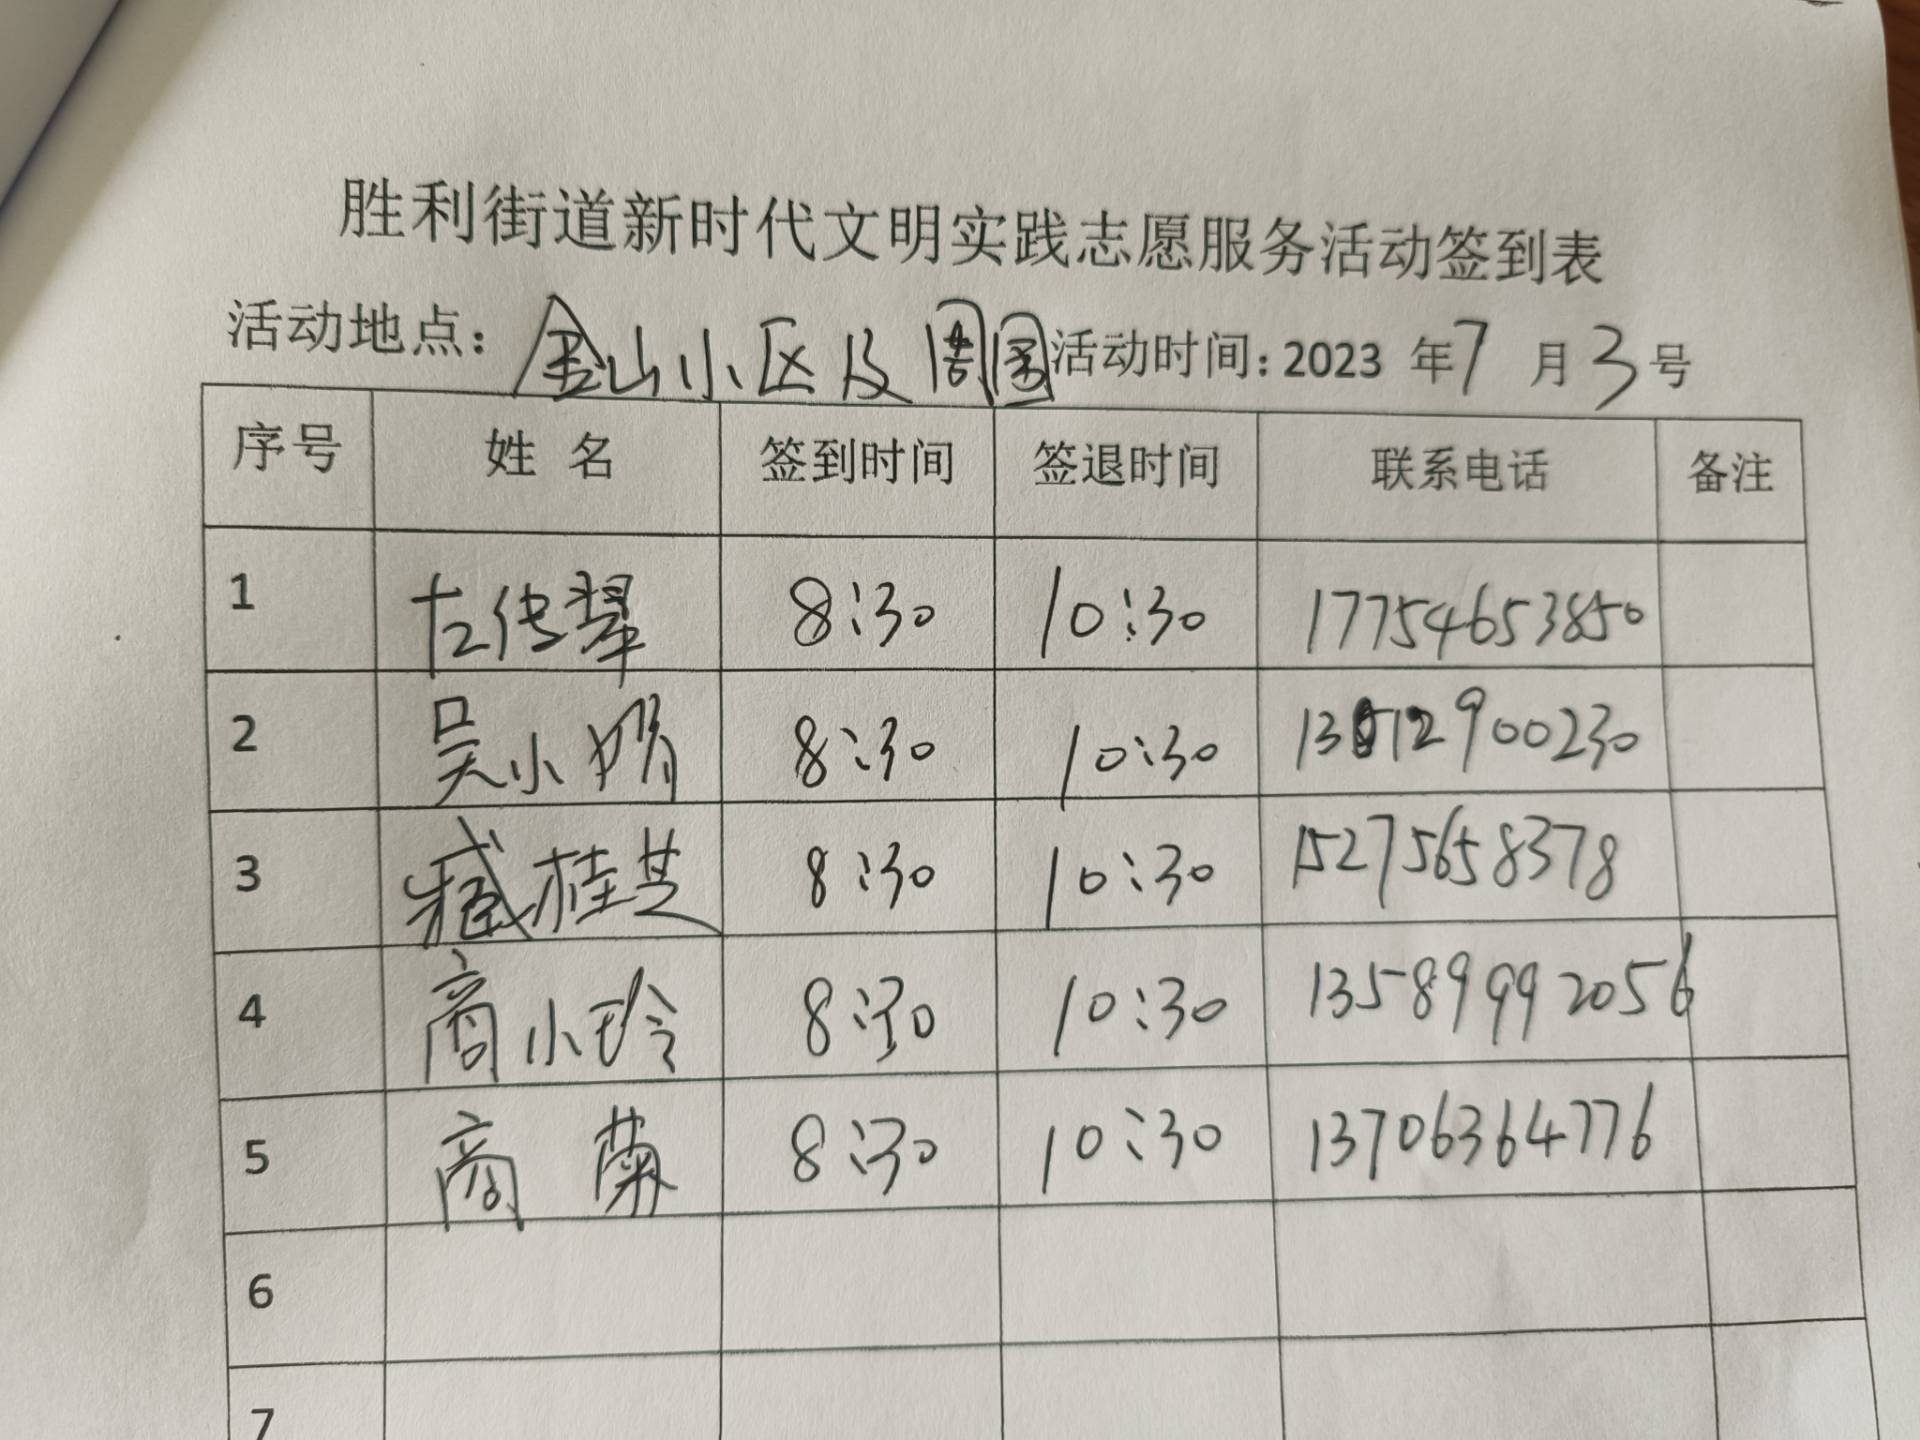 胜利街道新时代文明实践志愿服务活动签到表
活动地点：金山小区及周围 活动时间：2023 年 7 月 3 号
序号 姓 名 签到时间 签退时间 联系电话 备注
1 左传翠 8:30 10:30 17754653850
2 吴小娟 8:30 10:30 13012900230
3 臧桂芝 8:30 10:30 15275658378
4 商小玲 8:30 10:30 13589992056
5 商 菊 8:30 10:30 13706364776
6
7